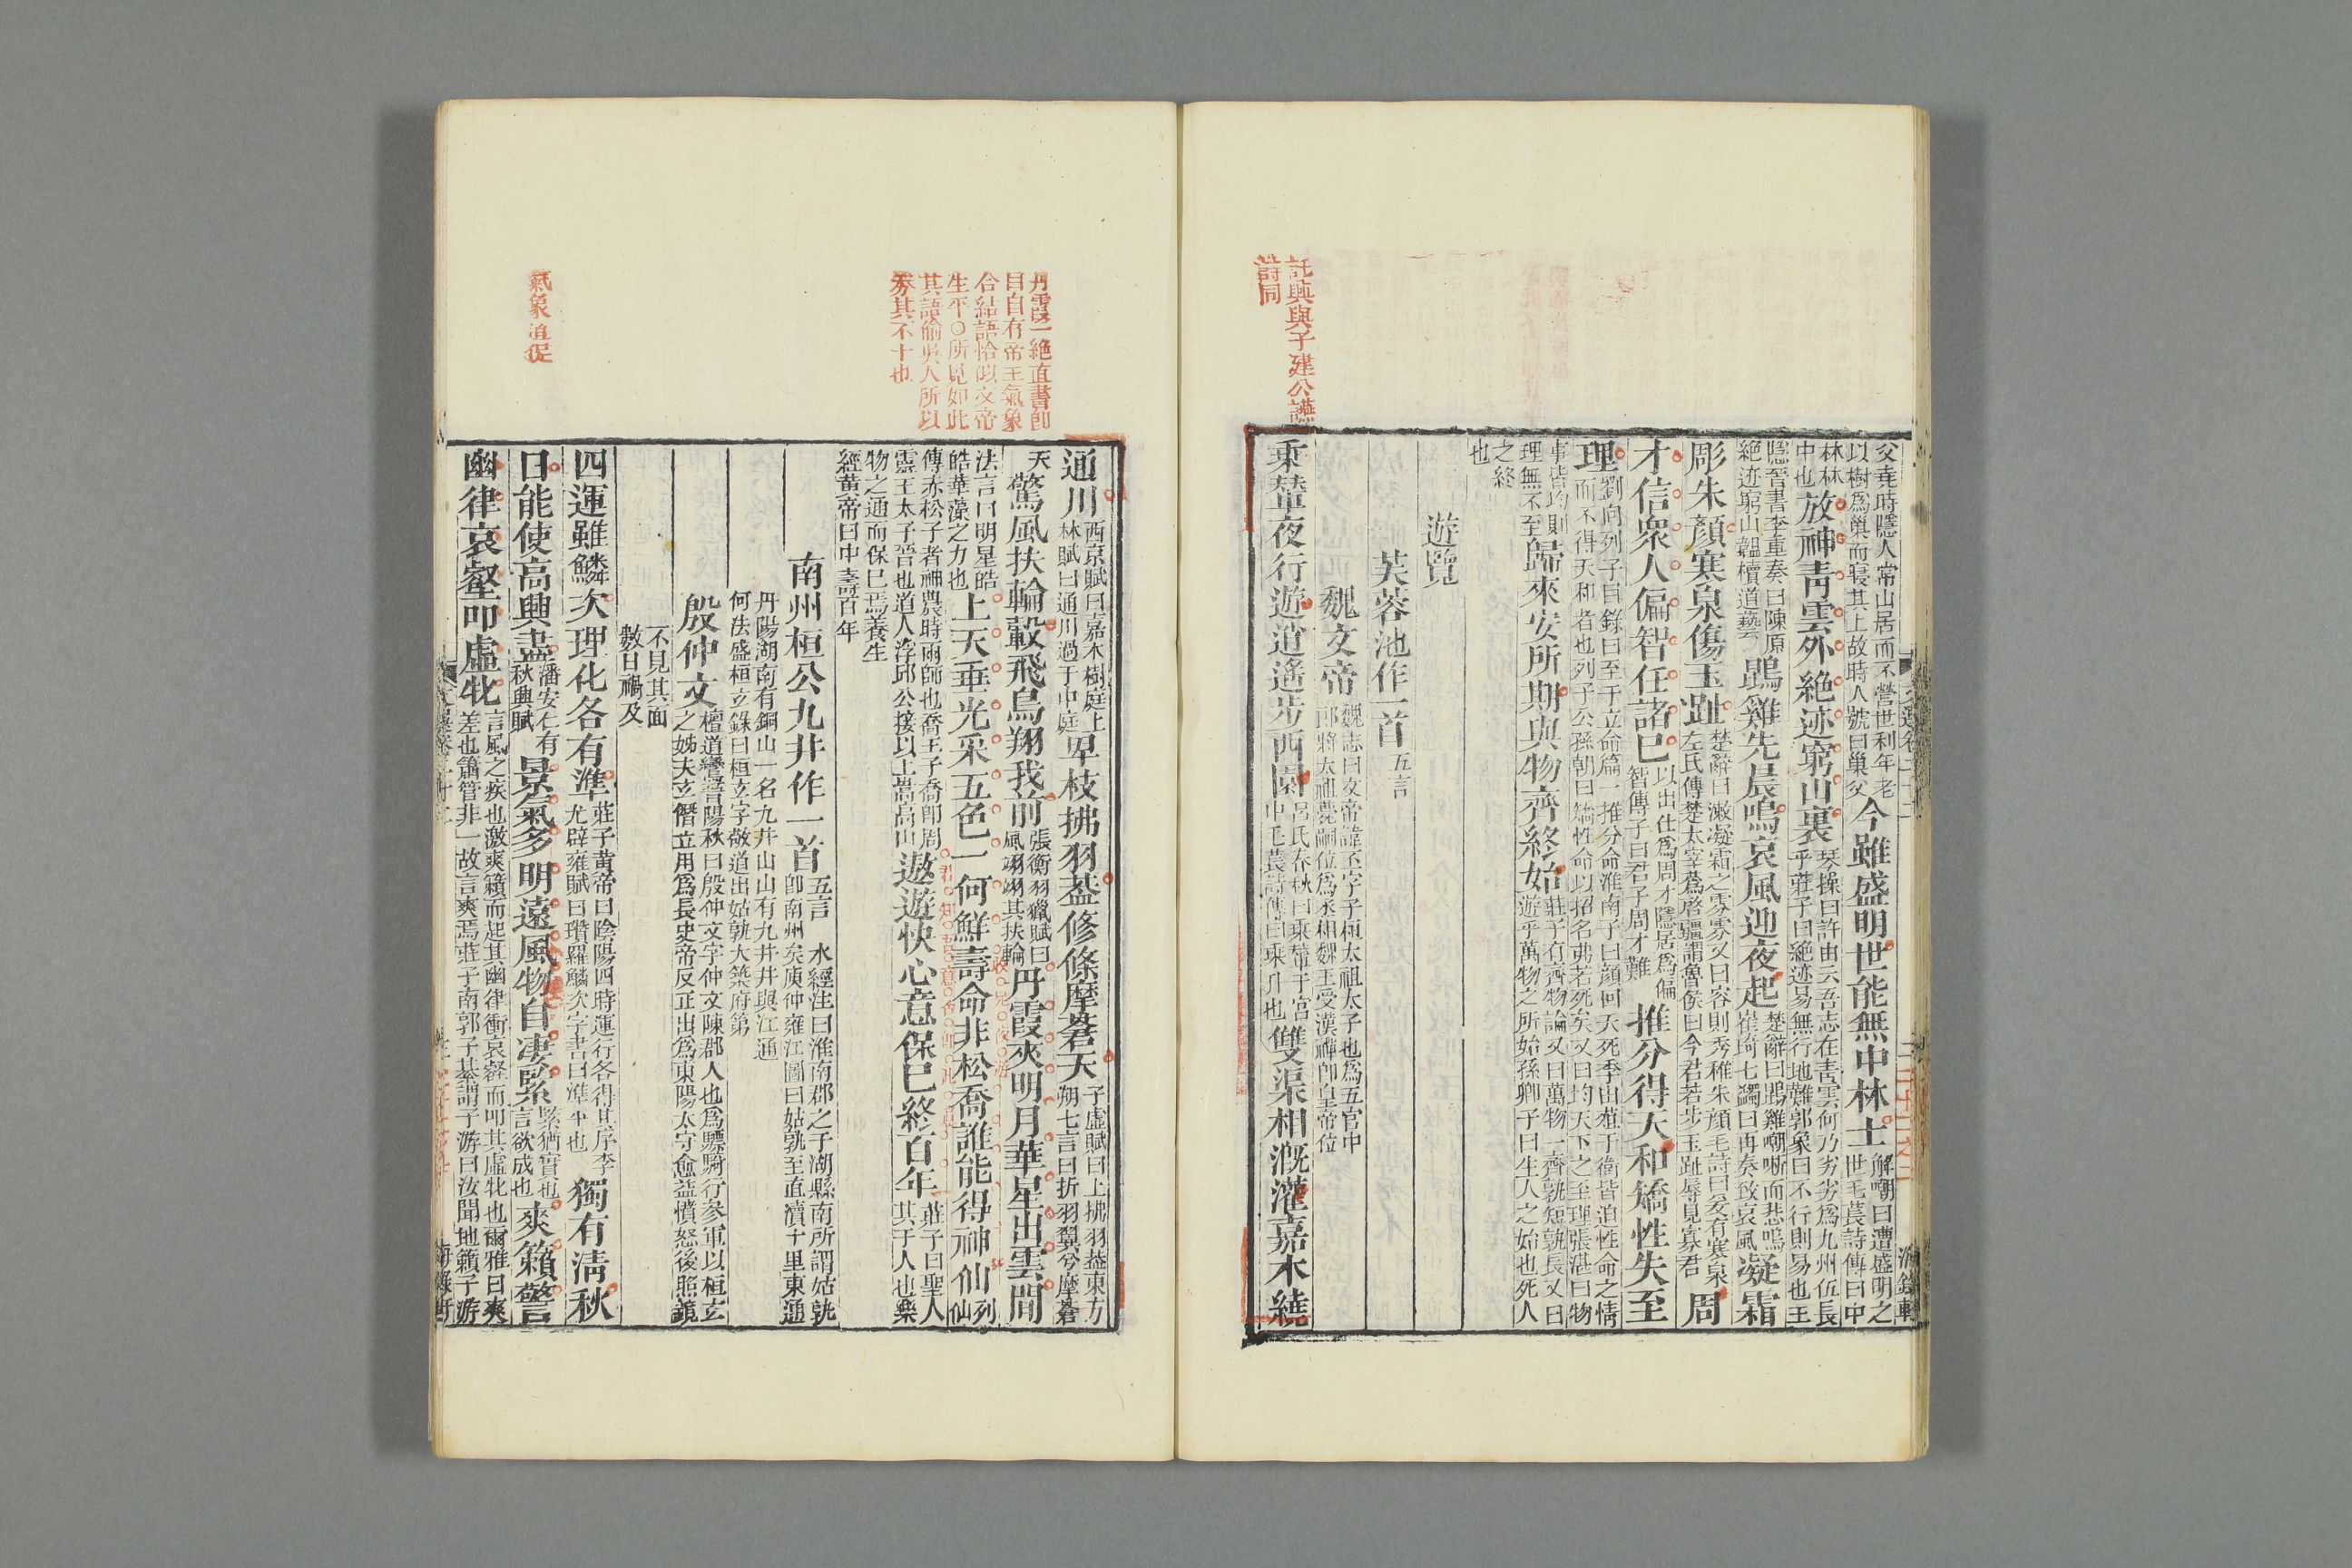 父堯時隱人常山居而不營世利年老
以樹爲巢而寝其上故時人號曰巢父
今雖盛明世能無中林士
解嘲曰遭盛明之
世毛萇詩傳曰中
林林
中也
放神青雲外絶迹窮山裏
琴操曰許由云吾志在青雲何乃劣劣爲九州伍長
乎莊子曰絶迹易無行地難郭象曰不行則易也王
隱晉書李重奏曰陳原
絶迹窮山韞櫝道藝
鵾雞先晨鳴哀風迎夜起
楚辭曰鵾雞嘲哳而悲鳴
崔琦七蠲曰再奏致哀風
凝霜
彫朱顔寒泉傷玉趾
楚辭曰漱凝霜之雰雰又曰容則秀稚朱顔毛詩曰爰有寒泉
左氏傳楚太宰薳啓疆謂魯侯曰今君若步玉趾辱見寡君
周
才信衆人偏智任諸已
以出仕爲周才隱居爲偏
智傅子曰君子周才難
推分得天和矯性失至
理
劉向列子目錄曰至于立命篇一推分命淮南子曰顔回夭死季由葅于衞皆迫性命之情
而不得天和者也列子公孫朝曰矯性命以招名弗若死矣又曰均天下之至理張湛曰物
事皆均則
理無不至
歸來安所期與物齊終始
莊子有齊物論又曰萬物一齊孰短孰長又曰
遊乎萬物之所始孫卿子曰生人之始也死人
之終
也
遊覽
芙蓉池作一首
五言
魏文帝
魏志曰文帝諱丕字子桓太祖太子也爲五官中
郎將太祖薨嗣位爲丞相魏王受漢禪卽皇帝位
乘輦夜行遊逍遙步西園
呂氏春秋曰乘輦于宮
中毛萇詩傳曰乘升也
雙渠相溉灌嘉木繞
託興與子建公讌
詩同
通川
西京賦曰嘉木樹庭上
林賦曰通川過于中庭
卑枝拂羽葢修條摩蒼天
子虛賦曰上拂羽葢東方
朔七言曰折羽翼兮摩蒼
天
驚風扶輪轂飛鳥翔我前
張衡羽獵賦曰
風翊翊其扶輪
丹霞夾明月華星出雲間
法言曰明星皓
皓華藻之力也
上天垂光采五色一何鮮壽命非松喬誰能得神仙
列
仙
傳赤松子者神農時雨師也喬王子喬卽周
靈王太子晉也道人浮邱公接以上嵩高山
遨遊快心意保已終百年
莊子曰聖人
其于人也樂
物之通而保已焉養生
經黄帝曰中壽百年
南州桓公九井作一首
五言 水經注曰淮南郡之于湖縣南所謂姑孰
卽南州矣庾仲雍江圖曰姑孰至直瀆十里東通
丹陽湖南有銅山一名九井山山有九井井與江通
何法盛桓玄錄曰桓玄字敬道出姑孰大築府第
殷仲文
檀道鸞晉陽秋曰殷仲文字仲文陳郡人也爲驃騎行參軍以桓玄
之姊夫玄僭立用爲長史帝反正出爲東陽太守愈益憤怒後照鏡
不見其面
數日禍及
四運雖鱗次理化各有準
莊子黄帝曰陰陽四時運行各得其序李
尤辟雍賦曰瓚羅鱗次字書曰準平也
獨有淸秋
日能使高興盡
潘安仁有
秋興賦
景氣多明遠風物自凄緊
緊猶實也
言欲成也
爽籟警
幽律哀壑叩虛牝
言風之疾也激爽籟而起其幽律衝哀壑而叩其虛牝也爾雅曰爽
差也簫管非一故言爽焉莊子南郭子綦謂子游曰汝聞地籟子游
丹霞一絶直書卽
目自有帝王氣象
合結語恰似文帝
生平○所見如此
其語偷吳人所以
券其不十也
氣象遒促